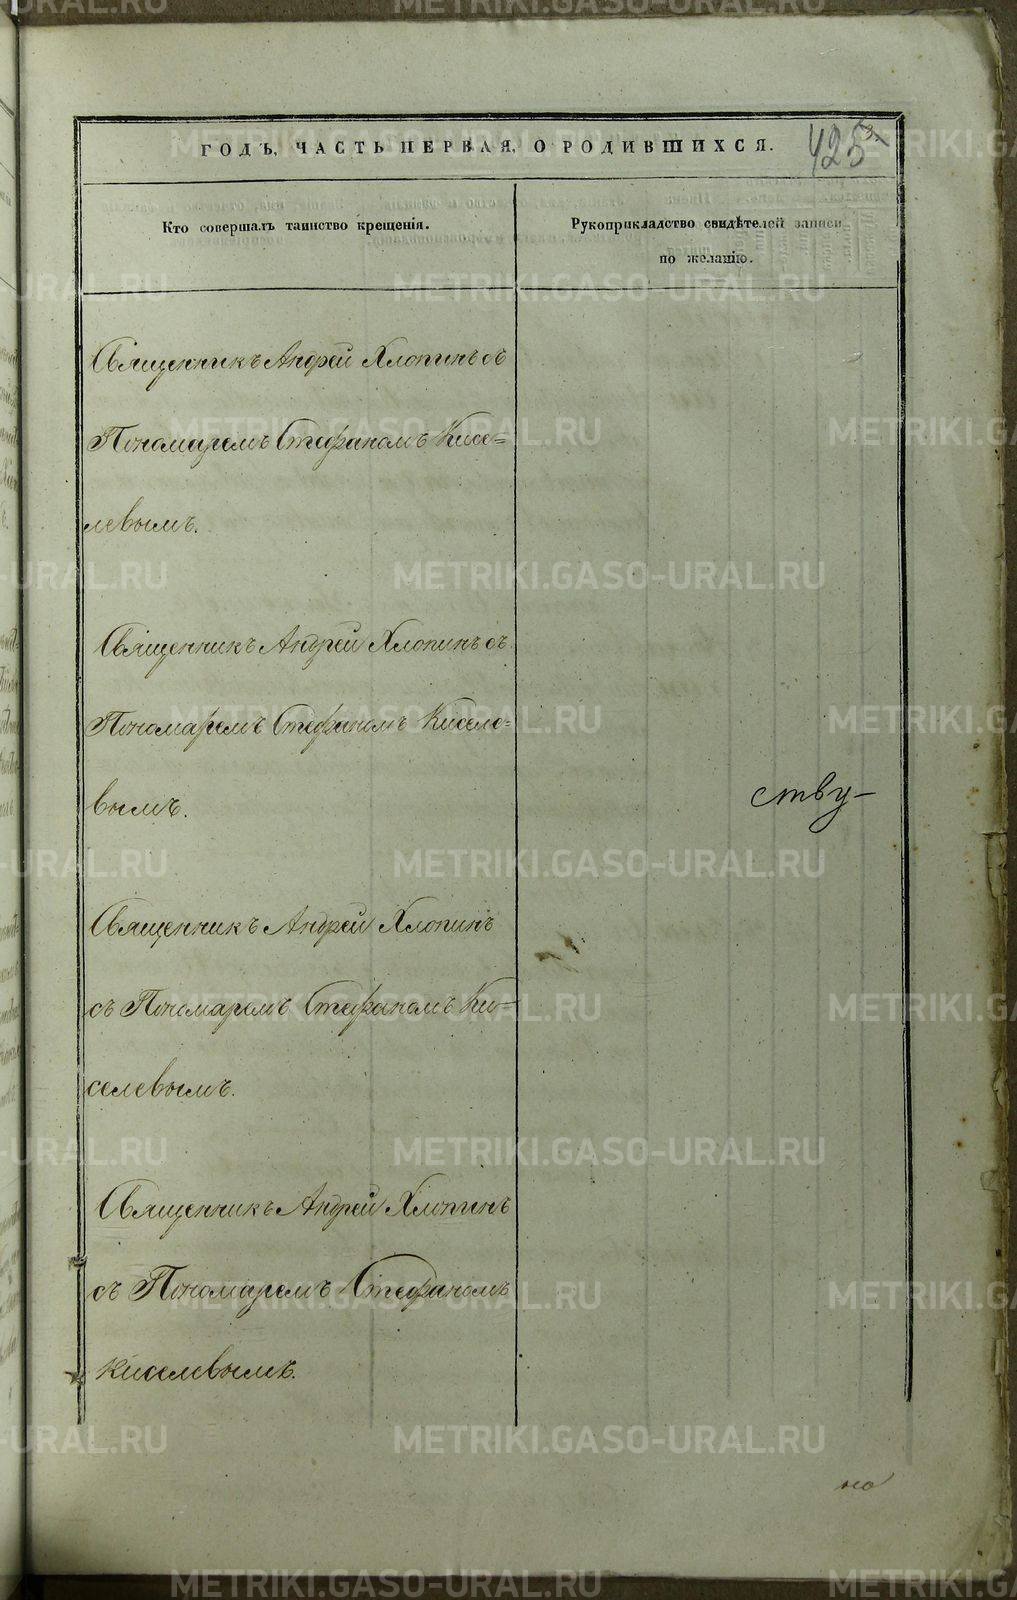 ГОДЪ, ЧАСТЬ ПЕРВАЯ, О РОДИВШИХСЯ.
425
Кто совершалъ таинство крещенія.
Рукоприкладство свидѣтелей записи
по желанію.
Священникъ Андрей Хлопинъ съ
Пономаремъ Стефаномъ Кисе=
левымъ.
Священникъ Андрей Хлопинъ съ
Пономаремъ Стефаномъ Киселе=
вымъ.
ству-
Священникъ Андрей Хлопинъ
съ Пономаремъ Стефаномъ Ки=
селевымъ.
Священникъ Андрей Хлопинъ
съ Пономаремъ Стефаномъ
Киселевымъ.
но
METRIKI.GASO-URAL.RU